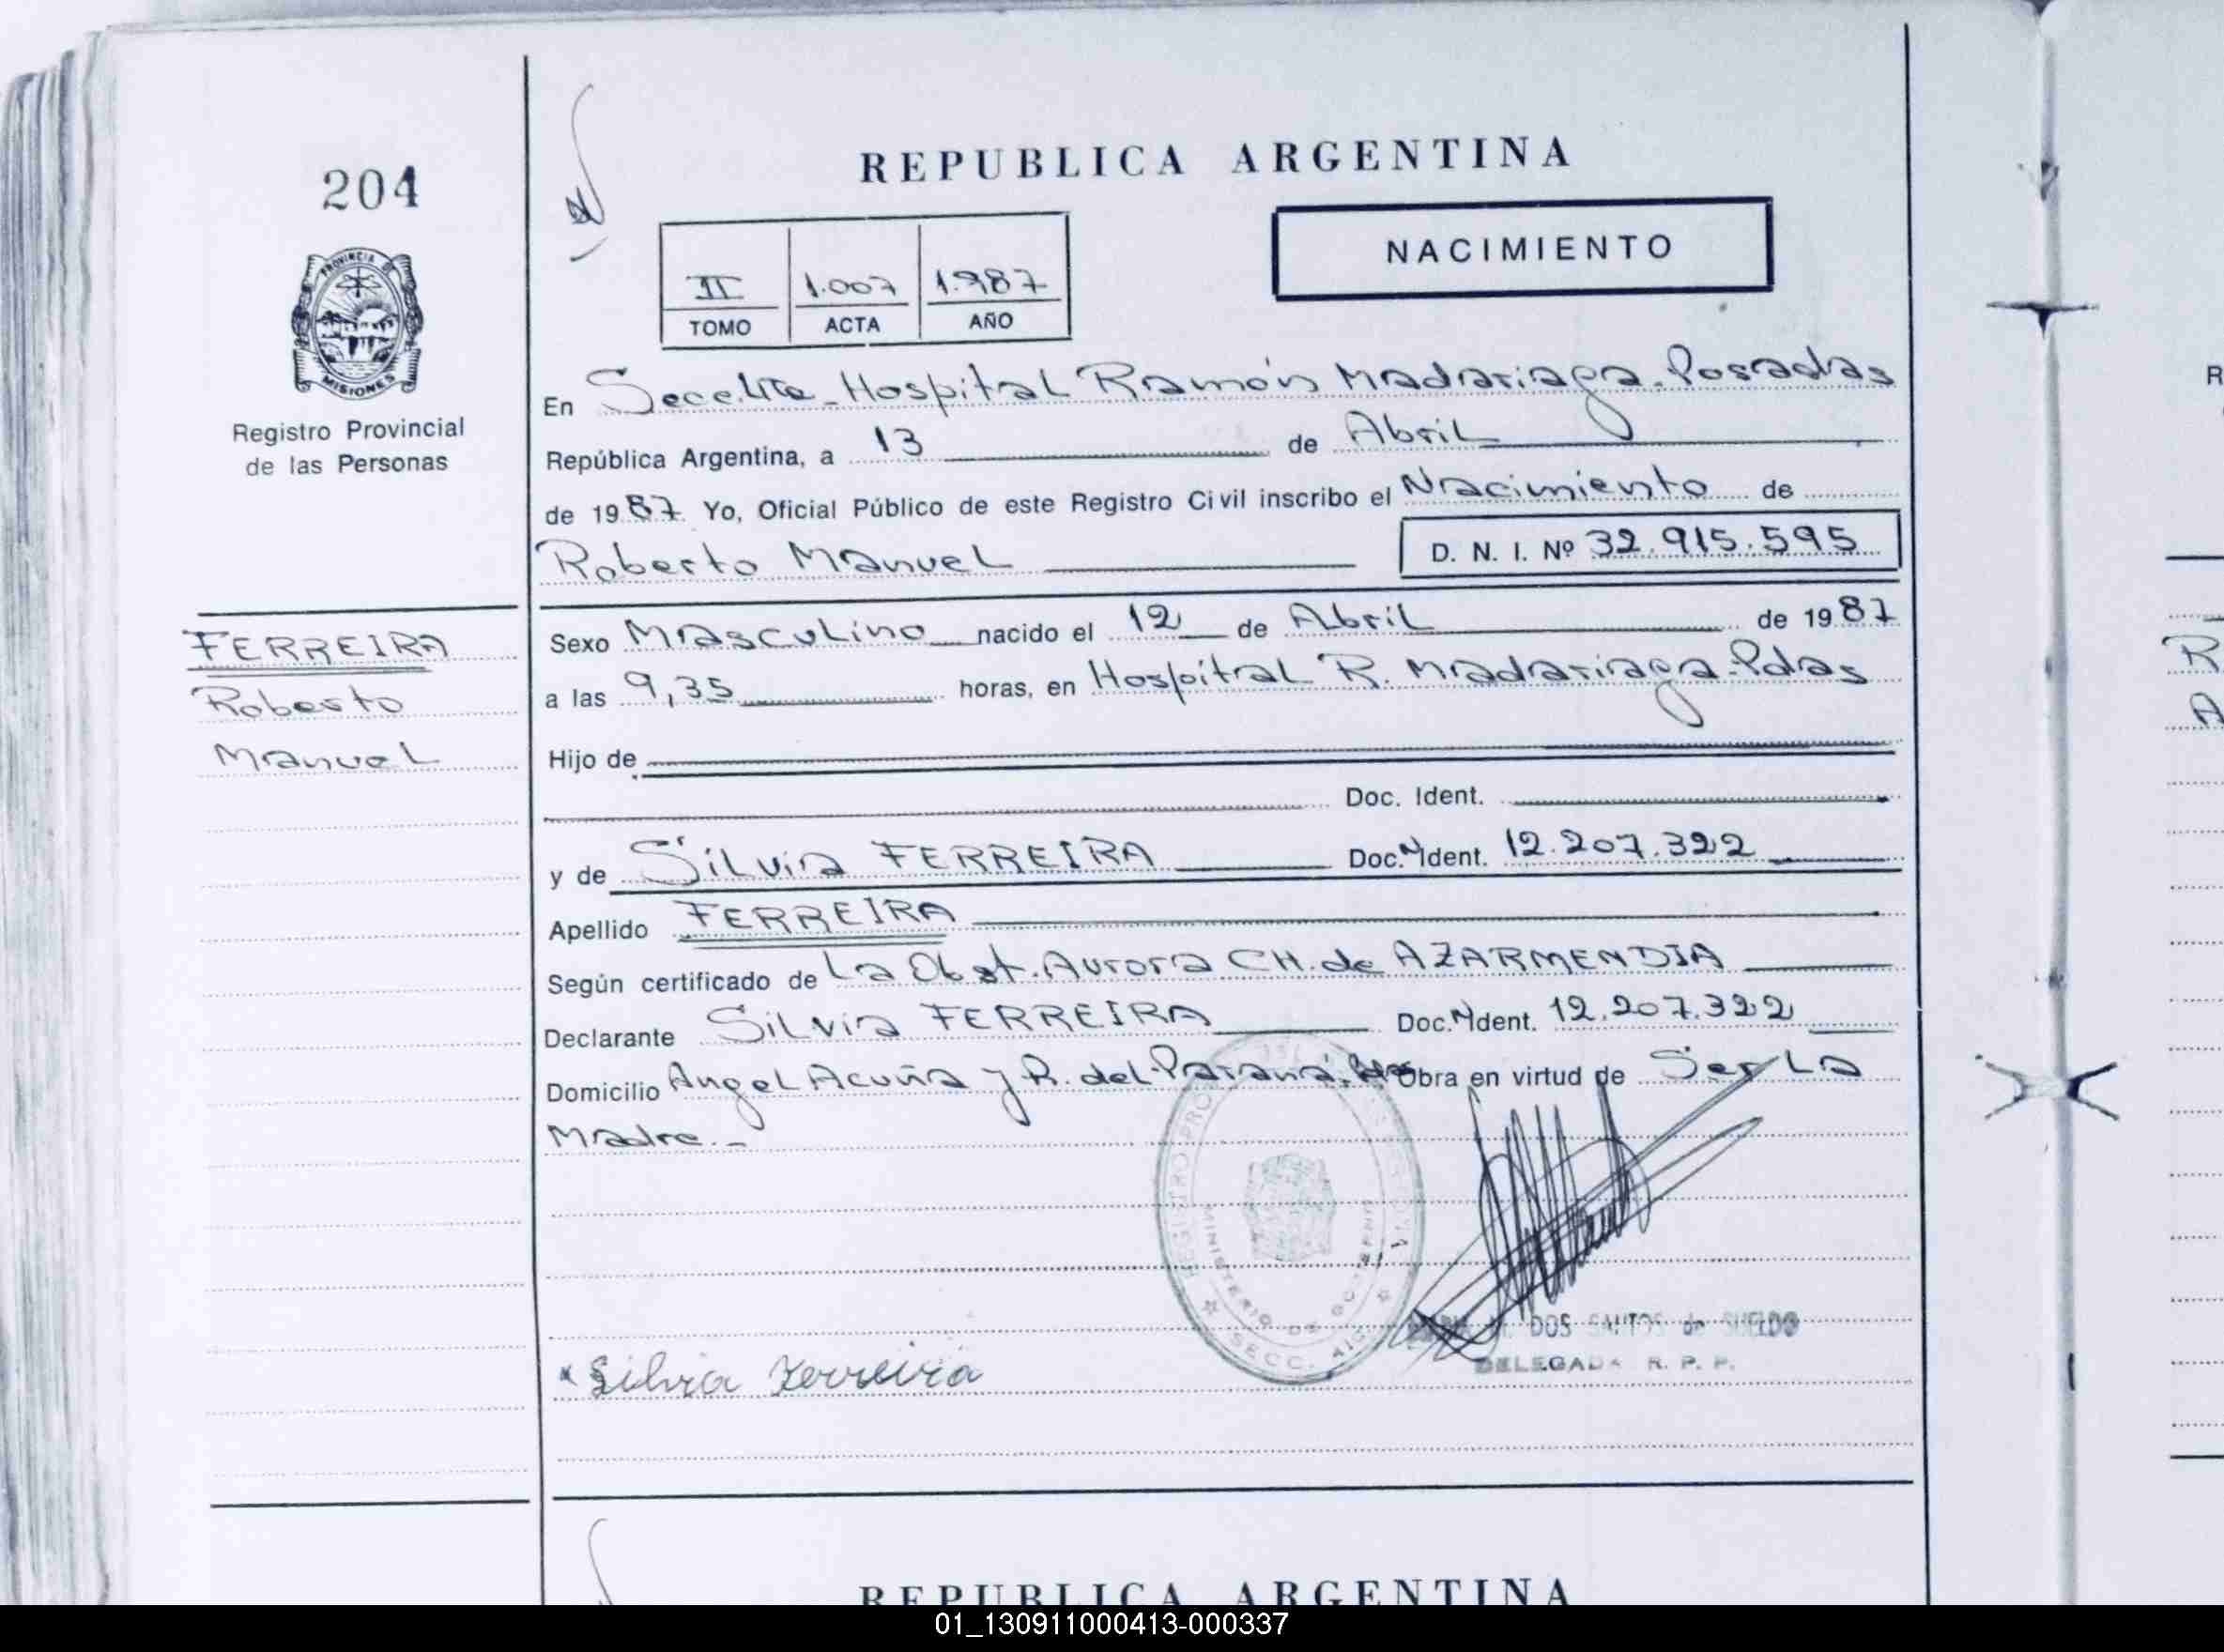 204
PROVINCIA DE
MISIONES
Registro Provincial
de las Personas
REPUBLICA ARGENTINA
NACIMIENTO
II 1.007 1.987
TOMO ACTA AÑO
En Secc. Hospital Ramón Madariaga-Posadas
República Argentina, a 13 de Abril
de 1987 Yo, Oficial Público de este Registro Civil inscribo el Nacimiento de
Roberto Manuel D. N. I. Nº 32.915.595
FERREIRA
Roberto
Manuel
Sexo Masculino nacido el 12 de Abril de 1987
a las 9,35 horas, en Hospital R. Madariaga-Pdas
Hijo de
Doc. Ident.
y de Silvia FERREIRA Doc. Ident. 12.207.322
Apellido FERREIRA
Según certificado de La Obst. Aurora CH. de AZARMENDIA
Declarante Silvia FERREIRA Doc. Ident. 12.207.322
Domicilio Angel Acuña y R. del Paraná. Obra en virtud de Ser La
Madre.-
REGISTRO
MINISTERIO DE
SECC.
DOS SANTOS de SUELDO
DELEGADA R. P. P.
Silvia Ferreira
REPUBLICA ARGENTINA
01_130911000413-000337